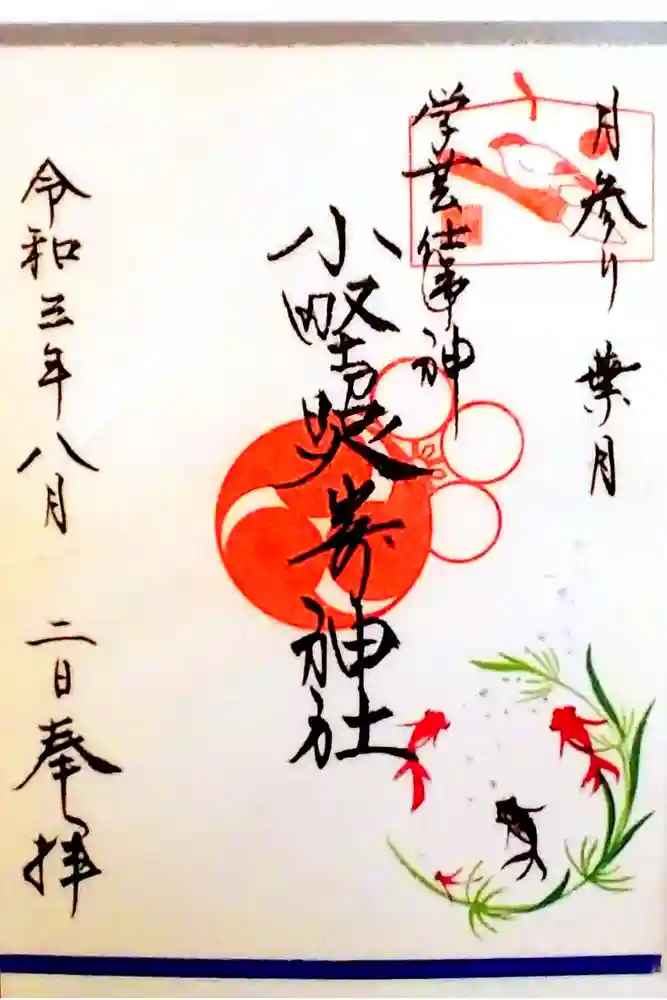 月参り 葉月
学芸仕事神
小野照崎神社
令和三年八月 二日奉拝